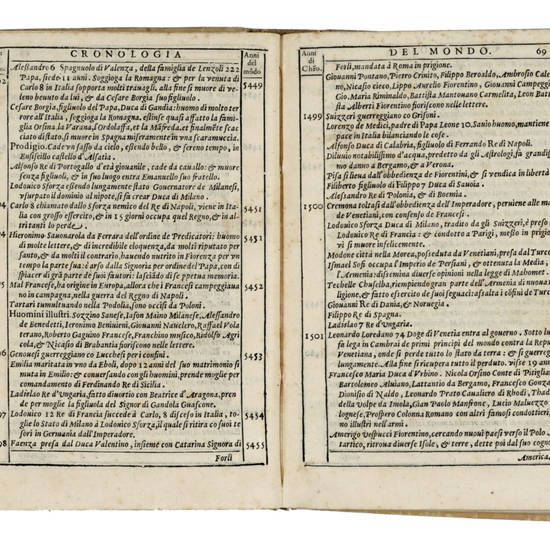 CRONOLOGIA
Anni
del
mõdo
Alessandro 6 Spagnuolo di Valenza, della famiglia de Lenzoli 222
Papa, siede 11 anni. Soggioga la Romagna: & per la venuta di 5449
Carlo 8 in Italia sopportò molti travagli, alla fine si muore di ve-
leno beuuto da lui, & da Cesare Borgia suo figliuolo.
Cesare Borgia, figliuolo del Papa, Duca di Gandia: huomo di terror
rore all'Italia, soggioga la Romagna, estinse quasi affatto la fami-
glia Orsina, la Varana, l'Ordolaffa, et la Mãfreda, et finalmẽte scac
ciato di stato, si muore in Spagna miseramente in vna scaramuccia.
Prodigio. Cade vn sasso da cielo, essendo bello, & sereno tempo, in
Ensisello castello d'Alsatia.
Alfonso Re di Portogallo d'età giouanile, cade da cauallo: & muore
senza figliuoli, & in suo luogo entra Emanuello suo fratello.
Lodouico Sforza essendo lungamente stato Gouernatore de Milanesi,
vsurpato il dominio al nipote, si fu crear Duca di Milano.
Carlo 8 chiamato da Sforza in odio del Re di Napoli, viene in Ita 5451
lia con grosso essercito, & in 15 giorni occupa quel Regno, & in al-
trettanti lo perde.
Hieronimo Sauonarola da Ferrara dell'ordine de Predicatori: huomo 5452
di molte lettere, & di incredibile eloquenza, da molti riputato per
santo, & da molti il contrario, hauendo nutrito in Fiorenza per vn
tempo la parte sua: è arso dalla Signoria per ordine del Papa, con di
spiacer di chi gli credeua: & astretto da tormenti, confessa d'hauer
ingannato il mondo.
Mal Francese, ha origine in Europa, allora che i Francesi campeggiaua
no in campagna, nella guerra del Regno di Napoli.
Tartari tumultuando nella Podolia, sono occisi da Poloni.
Huomini illustri. Sozzino Sanese, Iason Maino Milanese, Alessandro
de Benedetti, Ieronimo Beniuieni, Giouanni Nauclero, Raffael Vola
terrano, Roberto Gaguino Francese, Franchino musico, Rodolfo Agri
cola, & Nicasio di Brabantia fiorischono nelle lettere.
Genouesi guerreggiano co Lucchesi per i confini. 5453
Emilia maritata in vno da Eboli, dopo 12 anni del suo matrimonio si
muta in huomo, & conuersa con gli huomini, prende moglie per
commandamento di Ferdinando Re di Sicilia.
Ladislao Re d'Vngaria, fatto diuortio con Beatrice d'Aragona, pren
de per moglie la figliuola del Signor di Candola Guascone.
Lodouico 12 Re di Francia succede à Carlo, 8 disceso in Italia, to- 5454
glie lo Stato di Milano à Lodouico Sforza, il quale si ritira co suoi te
sori in Germania dall'Imperadore.
Faenza presa dal Duca Valentino, insieme con Catarina Signora di 5455
Forlì
DEL MONDO. 69
Anni
di Chro.
Forlì, mandata à Roma in prigione.
Giouanni Pontano, Pietro Crinito, Filippo Beroaldo, Ambrosio Cale-
no, Nicasio cieco, Lippo Aurelio Fiorentino, Giouanni Campeggi
Gio. Maria Riminaldo, Battista Mantouano Carmelita, Leon Batti
sta Alberti Fiorentino fiorischono nelle lettere.
1499 Suizzeri guerreggiano co Grisoni.
Lorenzo de Medici, padre di Papa Leone 10. Sauio huomo, mantiene
pace in Italia bilanciando le cose.
Alfonso Duca di Calabria, figliuolo di Ferrando Re di Napoli.
Diluuio notabilissimo d'acqua, predetto da gli Astrologi, fa grandis
mo danno a Bergamo, & a Verona.
Pisa si lieua dall'obbedienza de Fiorentini, & si vendica in libertà
Filiberto figliuolo di Filippo 7 Duca di Sauoia.
Alessandro Re di Polonia, & di Boemia.
1500 Cremona leuatasi dall'obbedienza dell'Imperadore, peruiene alle ma
de Venetiani, con consenso de Francesi.
Lodouico Sforza Duca di Milano, tradito da gli Suizzeri, è preso
Lodouico Re di Francia: & condotto a Parigi, messo in prigio
vi si muore infelicemente.
Modone città nella Morea, posseduta da Venetiani, presa dal Turco
Ismael Sofi occupa l'Imperio de Persiani, & ottenuta la Media,
l'Armenia: dissemina diuerse opinioni nella legge di Mahomet.
Techelle Chuselba, riempiendo gran parte dell'Armenia di nuoua
ligione, & fatto essercito de suoi seguaci: assalta i côfini de Turchi
Giouanni Re di Dania, & Noruegia.
Filippo Re di Spagna.
Ladislao 7 Re d'Vngaria.
1501 Leonardo Loredano 74 Doge di Venetia entra al gouerno. Sotto lui
fa lega in Cambrai de primi principi del mondo contra la Repub
Venetiana, onde si perde tutto lo stato da terra: & si guerreggia
lungamente. Alla fine si ricupera tutto il perduto. visse 19 anni
Francesco Maria Duca d'Vrbino. Nicola Orsino Conte di Pitigliano
Bartolomeo Aluiano, Lattantio da Bergamo, Francesco Gonzaga
Dionisio di Naldo, Leonardo Prato Caualiero di Rhodi, Thadeo
della Volpe da Imola, Gian Paolo Manfrone, Lucio Maluezzo
lognese, Prospero Colonna Romano con altri famosi condottieri
mi illustri nell'armi.
Amerigo Vespucci Fiorentino, cercando nuoui paesi verso il Polo
tartico, ritroua diuerse Isole, & terre, dette poi dal suo cogno
America.